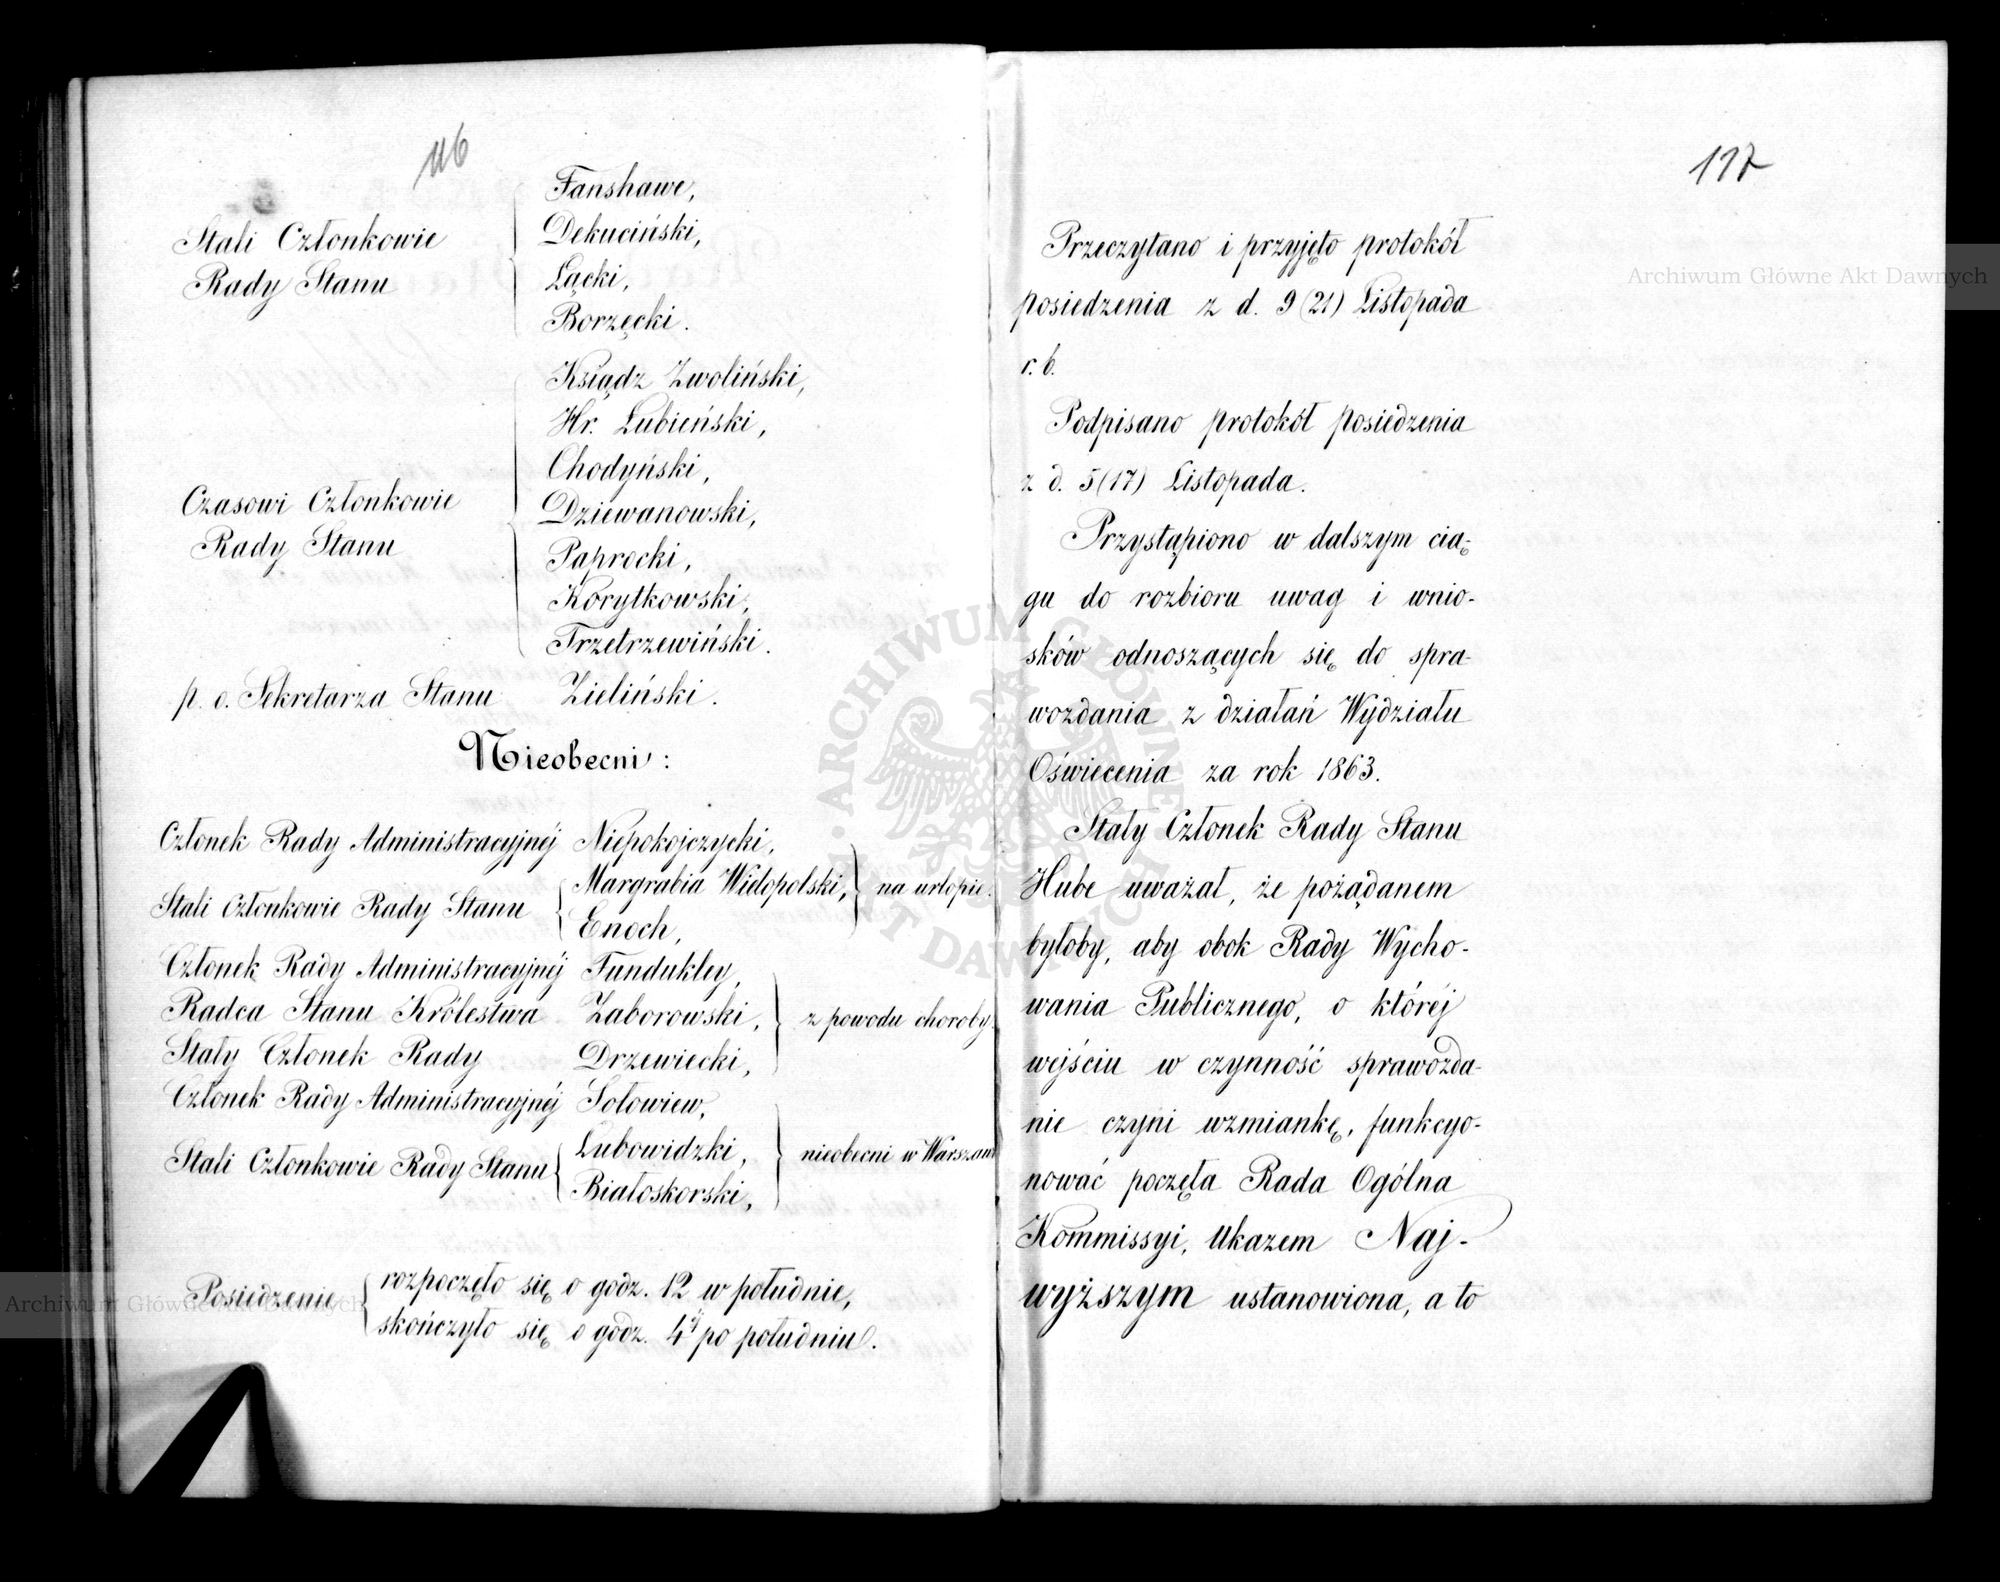 116
Stali Członkowie
Rady Stanu
Fanshawe,
Dekuciński,
Łącki,
Borzęcki.
Czasowi Członkowie
Rady Stanu
Ksiądz Zwoliński,
Hr. Łubieński,
Chodyński,
Dziewanowski,
Paprocki,
Korytkowski,
Trzetrzewiński.
p. o. Sekretarza Stanu Zieliński.
Nieobecni:
Członek Rady Administracyjnéj Niepokojczycki,
Stali Członkowie Rady Stanu
Margrabia Wielopolski,
Enoch,
na urlopie.
Członek Rady Administracyjnéj Fundukley,
Radca Stanu Królestwa Zaborowski,
Stały Członek Rady Drzewiecki,
z powodu choroby.
Członek Rady Administracyjnéj Sołowiew,
Stali Członkowie Rady Stanu
Łubowidzki,
Białoskorski,
nieobecni w Warszaw
Posiedzenie
rozpoczęło się o godz. 12 w południe,
skończyło się o godz. 4éj po południu.
117
Przeczytano i przyjęto protokół
posiedzenia z d. 9 (21) Listopada
r. b.
Podpisano protokół posiedzenia
z d. 5 (17) Listopada.
Przystąpiono w dalszym cią-
gu do rozbioru uwag i wnio-
sków odnoszących się do spra-
wozdania z działań Wydziału
Oświecenia za rok 1863.
Stały Członek Rady Stanu
Hube uważał, że pożądanem
byłoby, aby obok Rady Wycho-
wania Publicznego, o któréj
wejściu w czynność sprawozda-
nie czyni wzmiankę, funkcyo-
nować poczęła Rada Ogólna
Kommissyi, Ukazem Naj-
wyższym ustanowiona, a to
Archiwum Główne Akt Dawnych
Archiwum Główne Akt Dawnych
ARCHIWUM GŁÓWNE AKT DAWNYCH